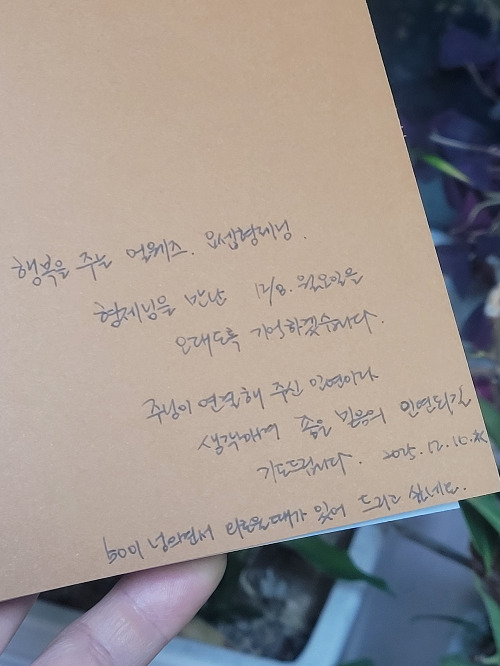 행복을 주는 얼웨즈. 요셉형제님.
형제님을 만난 12/8. 월요일을
오래도록 기억하겠습니다.
주님이 연결해 주신 인연이라
생각하며 좋은 믿음의 인연되길
기도드립니다. 2025.12.10.水
있어 드리고 싶네요.